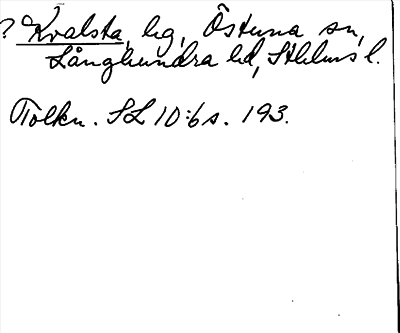 ? Kvalsta, hg, Östuna sn,
Långhundra hd, Sthlms l.
Tolkn. SL 10:6 s. 193.